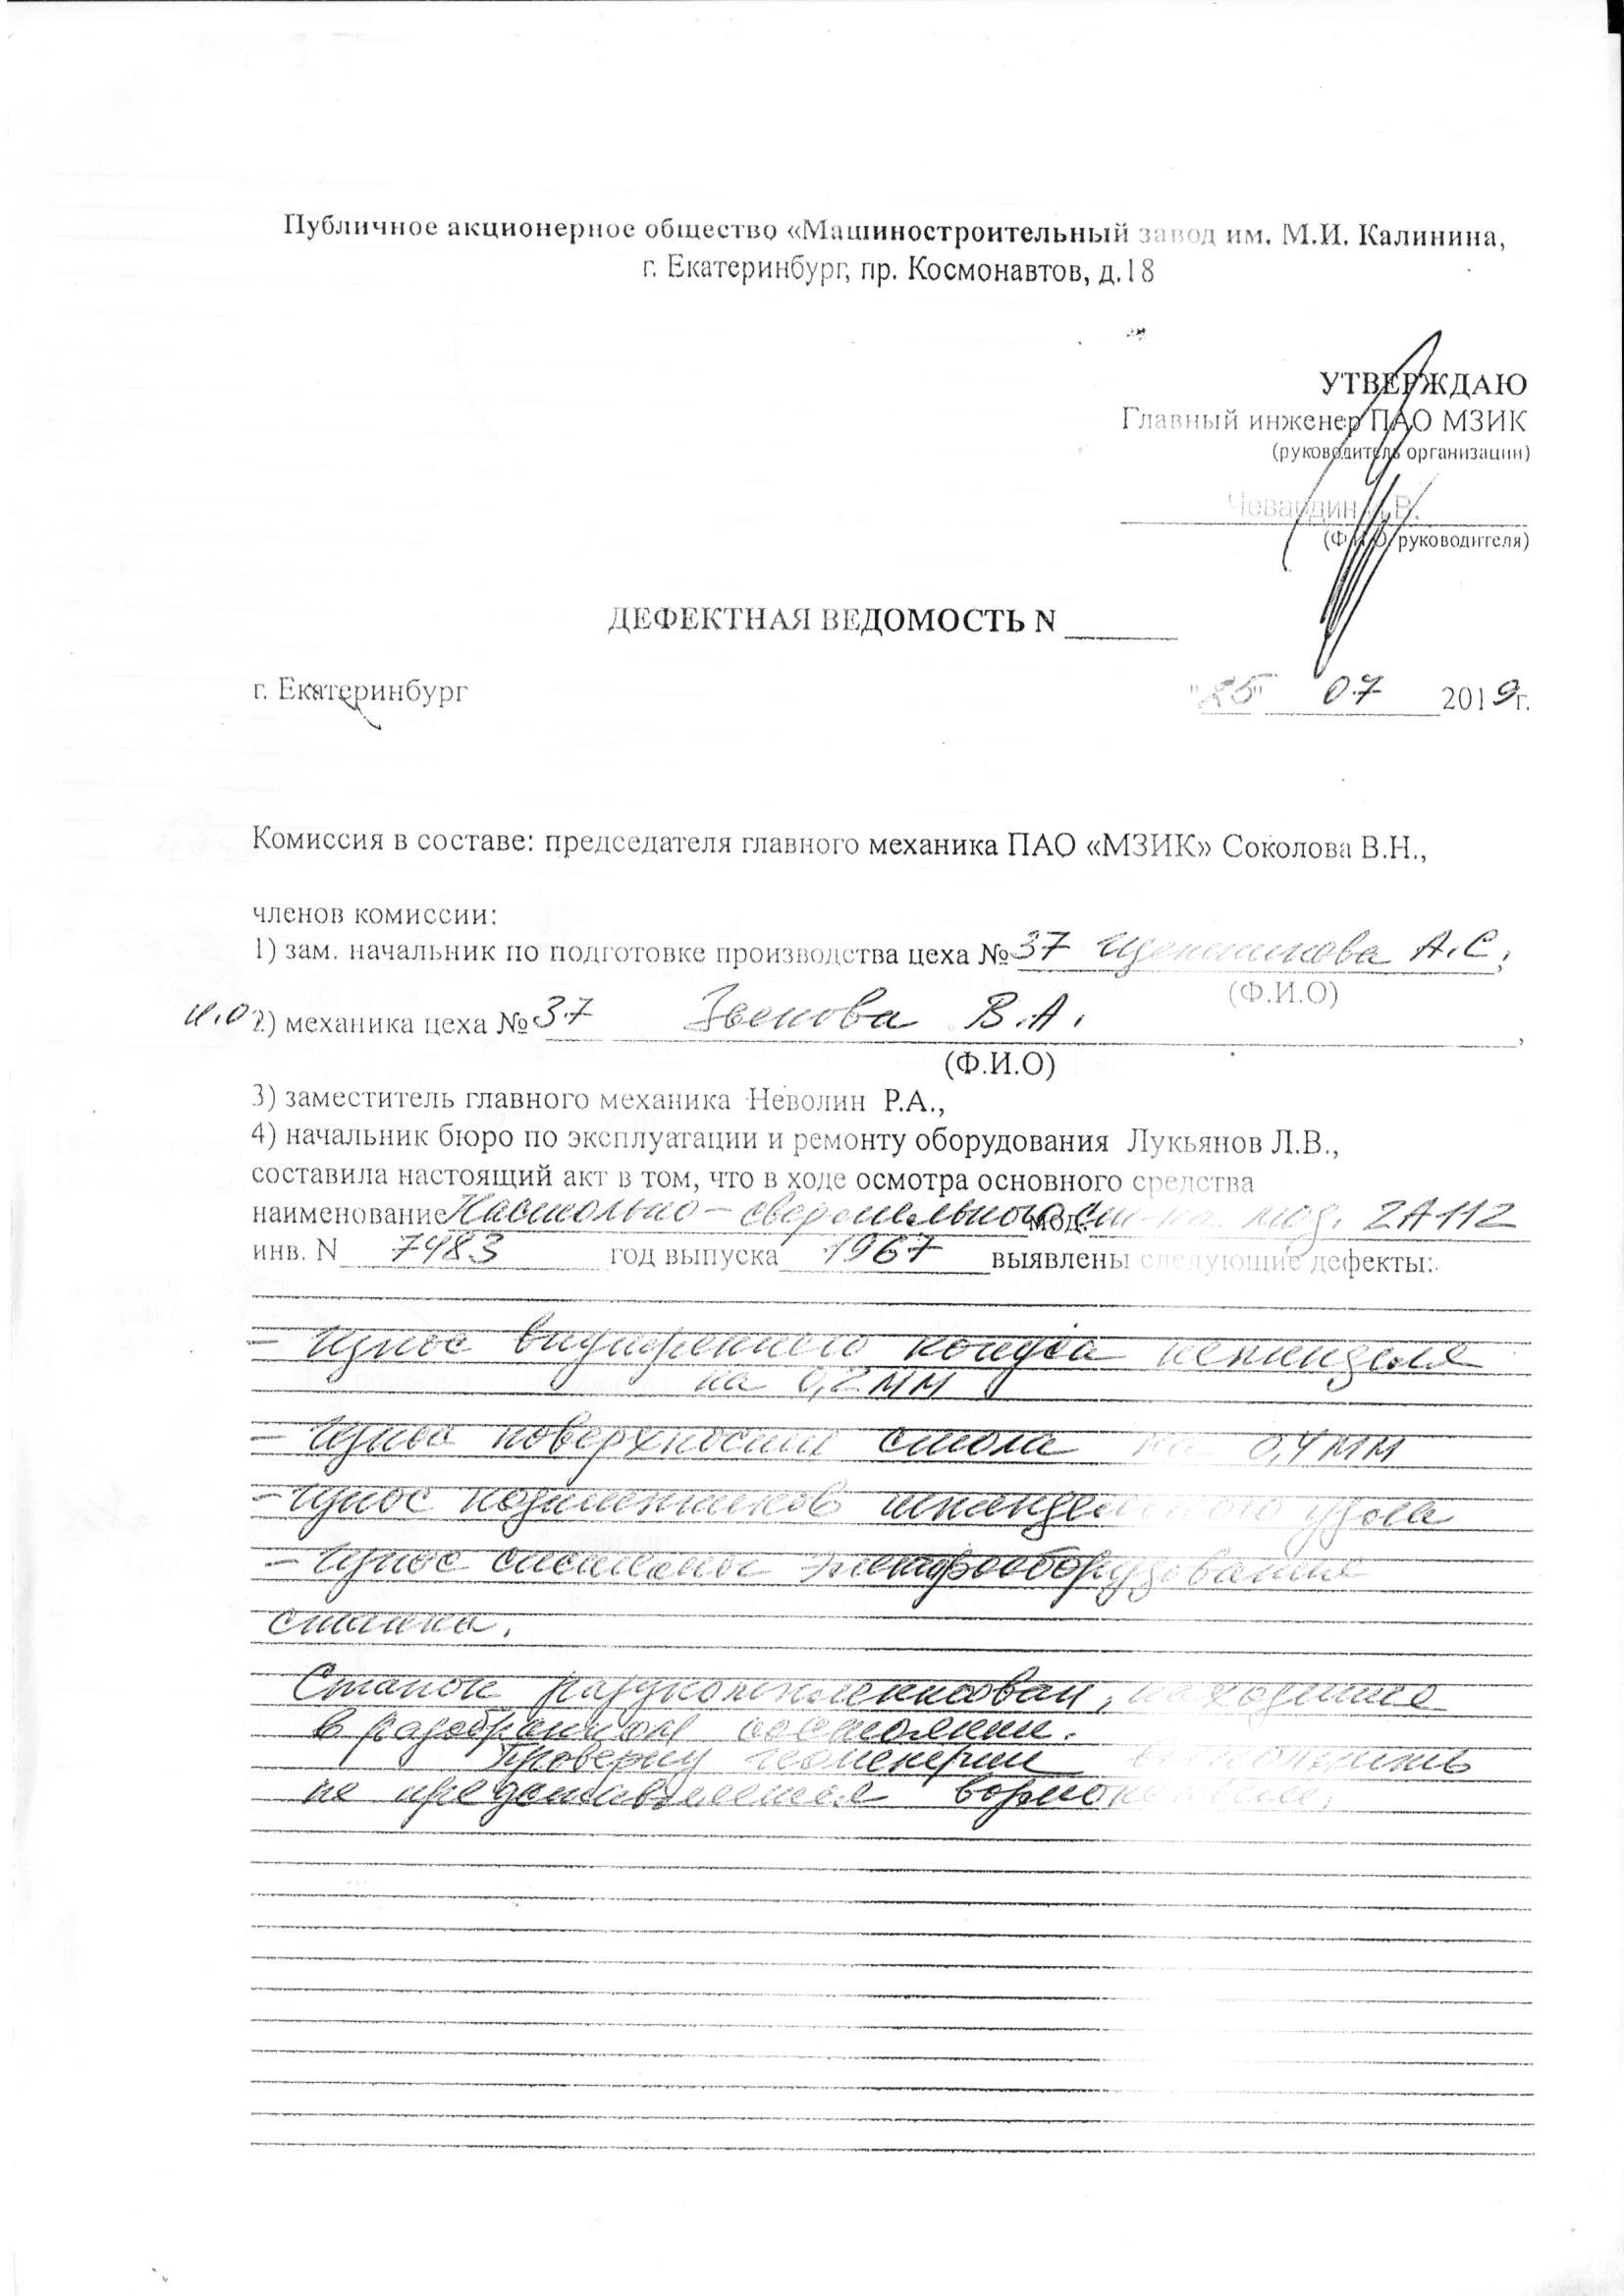 Публичное акционерное общество «Машиностроительный завод им. М.И. Калинина,
г. Екатеринбург, пр. Космонавтов, д.18
УТВЕРЖДАЮ
Главный инженер ПАО МЗИК
(руководитель организации)
(Ф.И.О. руководителя)
ДЕФЕКТНАЯ ВЕДОМОСТЬ N
г. Екатеринбург "25" 07 2019г.
Комиссия в составе: председателя главного механика ПАО «МЗИК» Соколова В.Н.,
членов комиссии:
1) зам. начальник по подготовке производства цеха № 37 А.С,
(Ф.И.О)
и.о 2) механика цеха № 37 В.А.,
(Ф.И.О)
3) заместитель главного механика Неволин Р.А.,
4) начальник бюро по эксплуатации и ремонту оборудования Лукьянов Л.В.,
составила настоящий акт в том, что в ходе осмотра основного средства
наименование Настольно-сверлильного мод. ст-ка мод. 2А112
инв. N 7483 год выпуска 1967 выявлены следующие дефекты:.
- Износ внутреннего конуса шпинделя
на 0,2 мм
- Износ поверхности стола на 0,4 мм
- Износ подшипников шпиндельного узла
- Износ системы электрооборудования
станка.
Станок разукомплектован, находится
в разобранном состоянии.
Проверку геометрии выполнить
не представляется возможным.